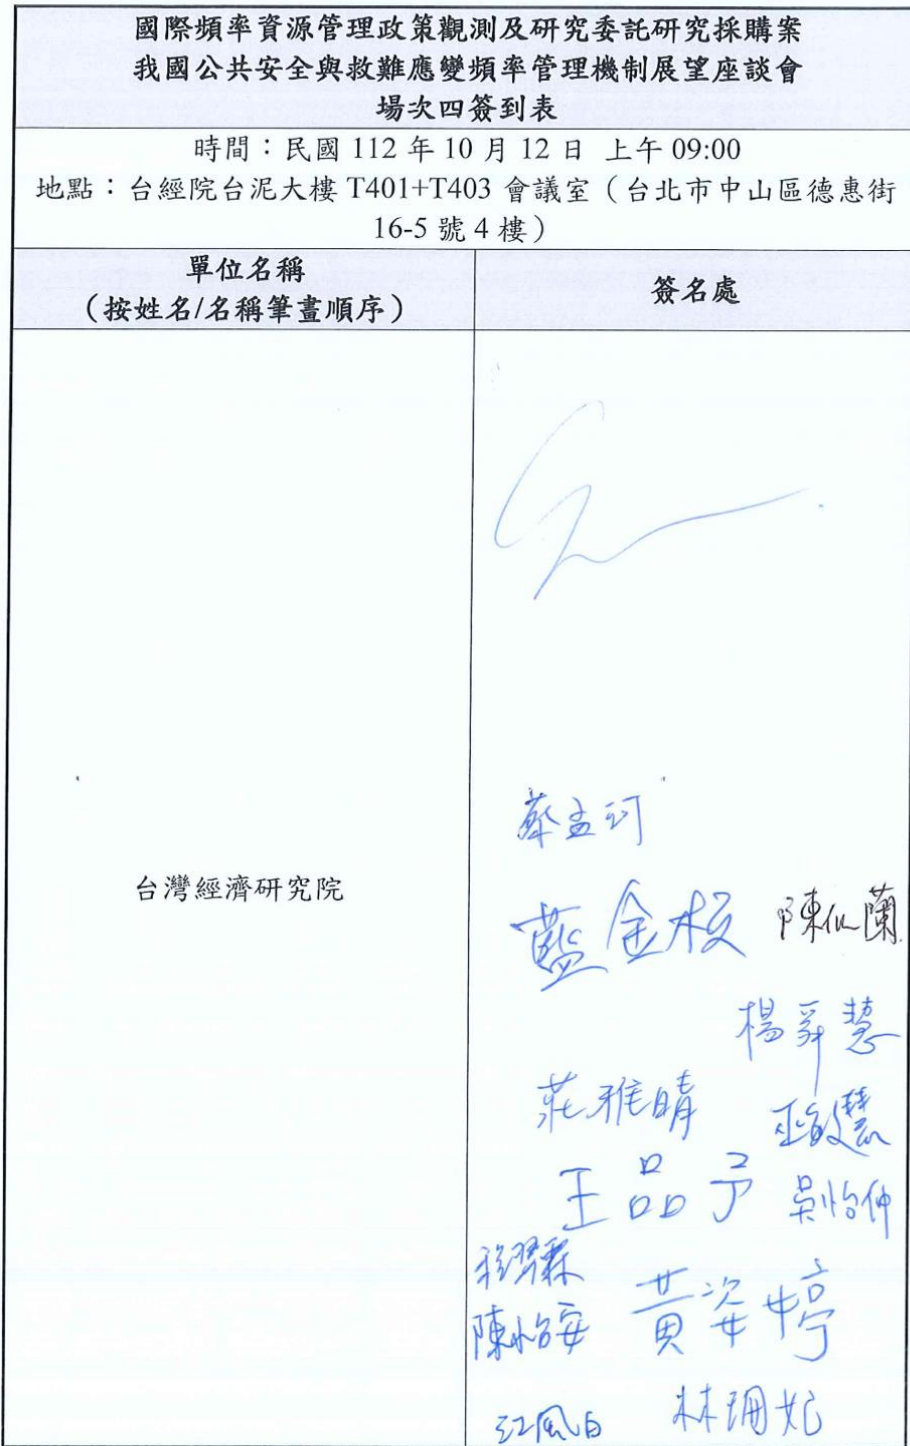 國際頻率資源管理政策觀測及研究委託研究採購案
我國公共安全與救難應變頻率管理機制展望座談會
場次四簽到表
時間：民國 112 年 10 月 12 日 上午 09:00
地點：台經院台泥大樓 T401+T403 會議室（台北市中山區德惠街
16-5 號 4 樓）
單位名稱
（按姓名/名稱筆畫順序）
簽名處
台灣經濟研究院
蔡孟珂
藍金 陳似蘭
楊舜慧
莊雅晴 巫敏慧
王品予 吳怡仲
陳怡安 黃姿婷
林珊妃